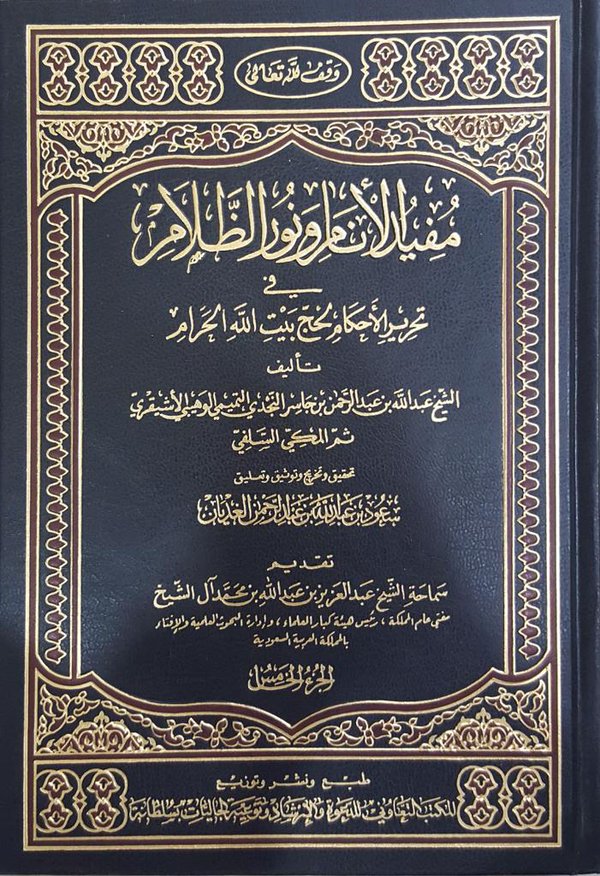 وقف لله تعالى
مفيد الأنام ونور الظلام
في
تحرير الأحكام لحج بيت الله الحرام
تأليف
الشيخ عبد الله بن عبد الرحمن بن جاسر النجدي التميمي الوهيبي الأشيقري
ثم المكي السلفي
تحقيق وتخريج وتوثيق وتعليق
سعود بن عبد الله بن عبد الرحمن الغديان
تقديم
سماحة الشيخ عبد العزيز بن عبد الله بن محمد آل الشيخ
مفتي عام المملكة، رئيس هيئة كبار العلماء، وإدارة البحوث العلمية والإفتاء
بالمملكة العربية السعودية
الجزء الخامس
طبع ونشر وتوزيع
المكتب التعاوني للدعوة والإرشاد وتوعية الجاليات بسلطانة